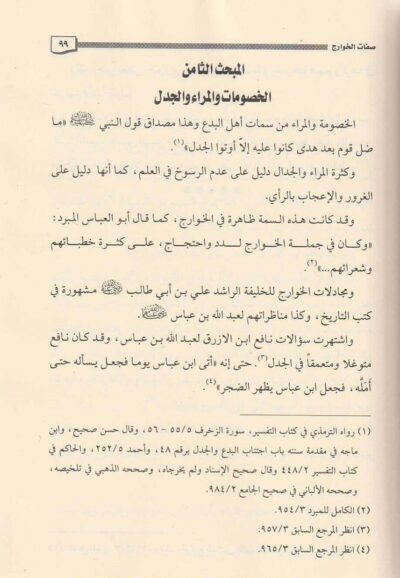 صفات الخوارج ٩٩
المبحث الثامن
الخصومات والمراء والجدل
الخصومة والمراء من سمات أهل البدع وهذا مصداق قول النبي ﷺ «ما
ضل قوم بعد هدى كانوا عليه إلا أوتوا الجدل»(١).
وكثرة المراء والجدال دليل على عدم الرسوخ في العلم، كما أنها دليل على
الغرور والإعجاب بالرأي.
وقد كانت هذه السمة ظاهرة في الخوارج، كما قال أبو العباس المبرد:
«وكان في جملة الخوارج لدد واحتجاج، على كثرة خطبائهم
وشعرائهم...»(٢).
ومجادلات الخوارج للخليفة الراشد علي بن أبي طالب مشهورة في
كتب التاريخ، وكذا مناظراتهم لعبد الله بن عباس.
واشتهرت سؤالات نافع ابن الازرق لعبد الله بن عباس، وقد كان نافع
متوغلا ومتعمقاً في الجدل(٣). حتى إنه «أتى ابن عباس يوما فجعل يسأله حتى
أمَلَّه، فجعل ابن عباس يظهر الضجر»(٤).
(١) رواه الترمذي في كتاب التفسير، سورة الزخرف ٥٥/٥ - ٥٦، وقال حسن صحيح، وابن
ماجه في مقدمة سننه باب اجتناب البدع والجدل برقم ٤٨، وأحمد ٢٥٢/٥، والحاكم في
كتاب التفسير ٤٤٨/٢ وقال صحيح الإسناد ولم يخرجاه، وصححه الذهبي في تلخيصه،
وصححه الألباني في صحيح الجامع ٩٨٤/٢.
(٢) الكامل للمبرد ٩٥٤/٣.
(٣) انظر المرجع السابق ٩٥٧/٣.
(٤) انظر المرجع السابق ٩٦٥/٣.